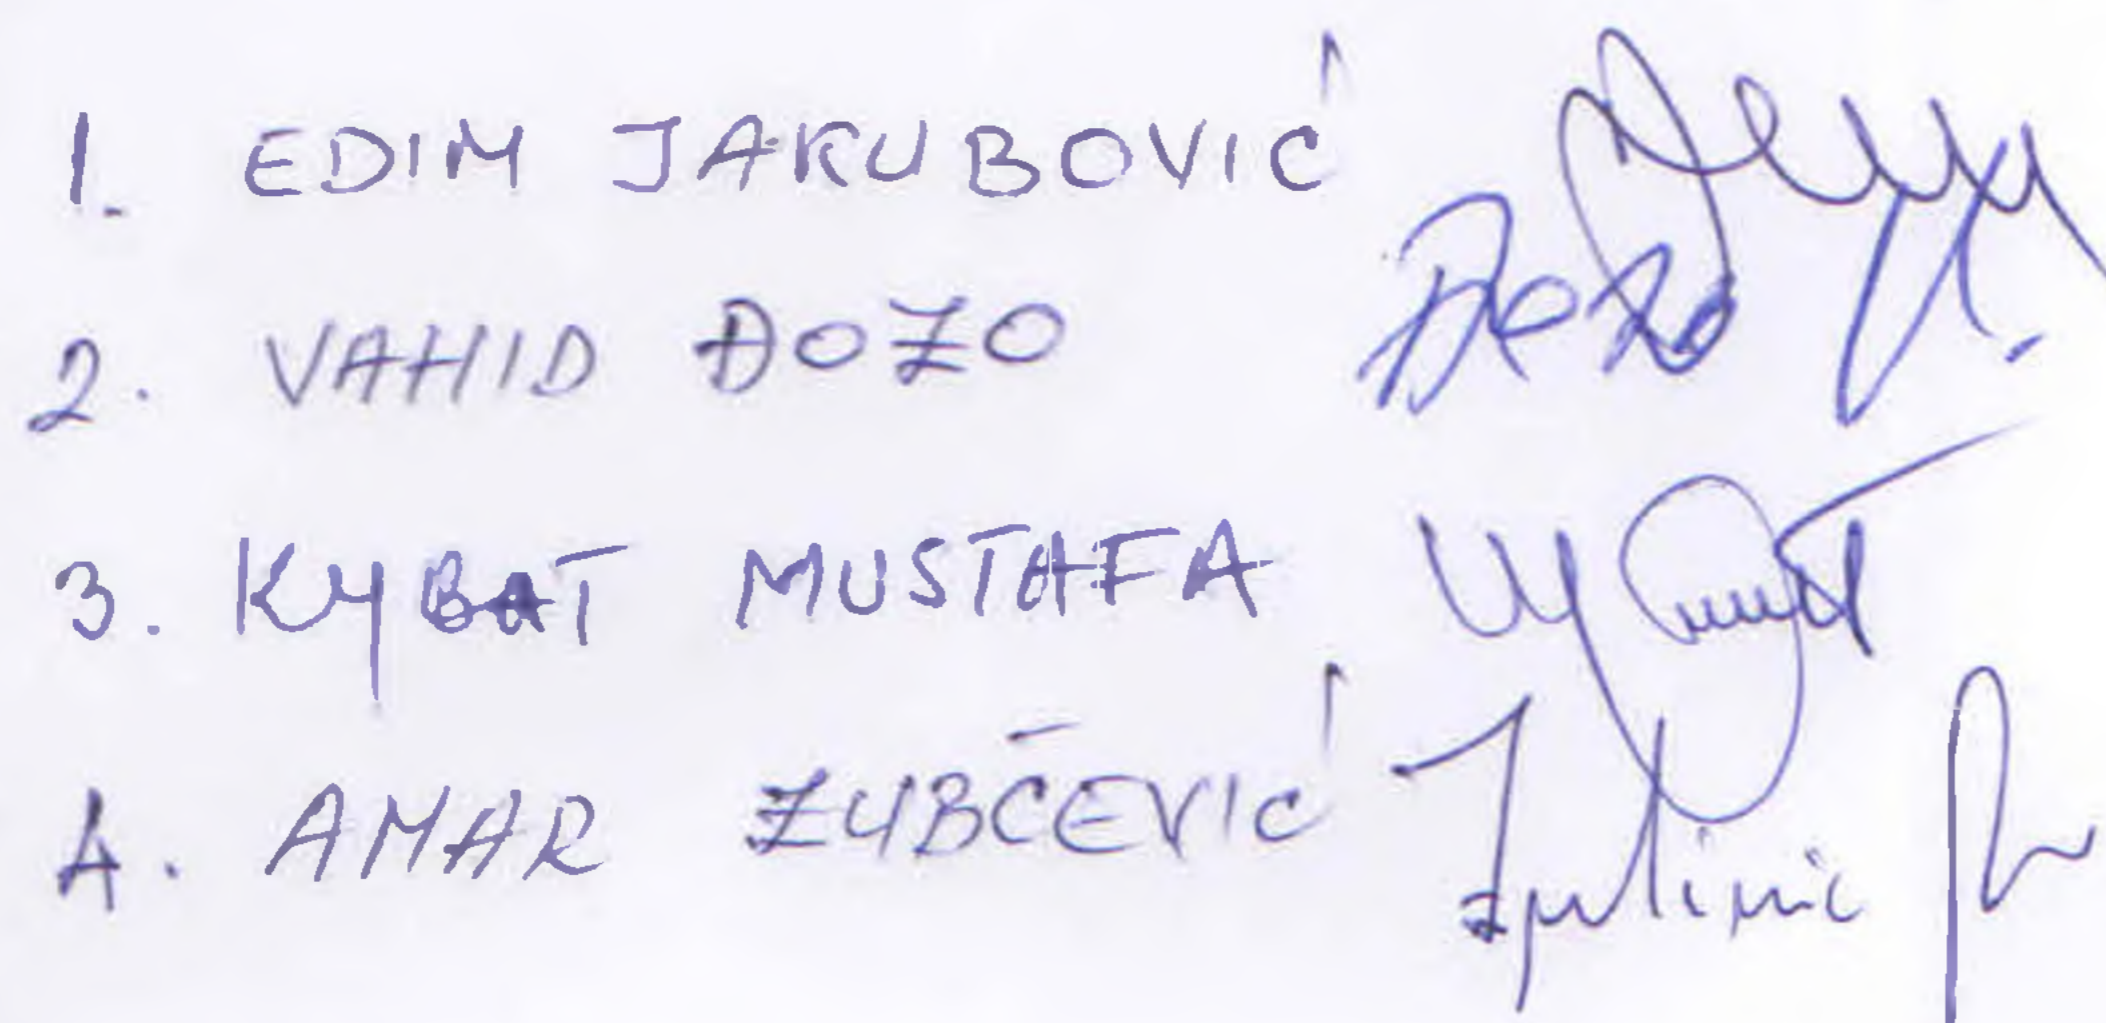 1. EDIM JAKUBOVIĆ
2. VAHID ĐOZO Đozo
3. KYBAT MUSTAFA
4. AMAR ZUBČEVIĆ